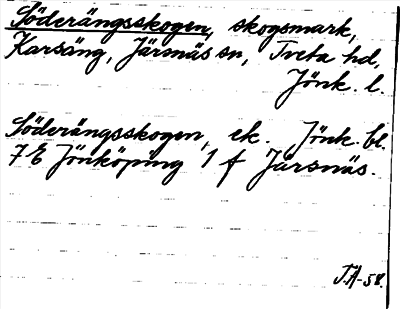 Söderängsskogen, skogsmark,
Karsäng, Järsnäs sn, Tveta hd,
Jönk. l.
Söderängsskogen, ek. Jönk. bl.
7E Jönköping 1 f Järsnäs.
T.Ä-58.